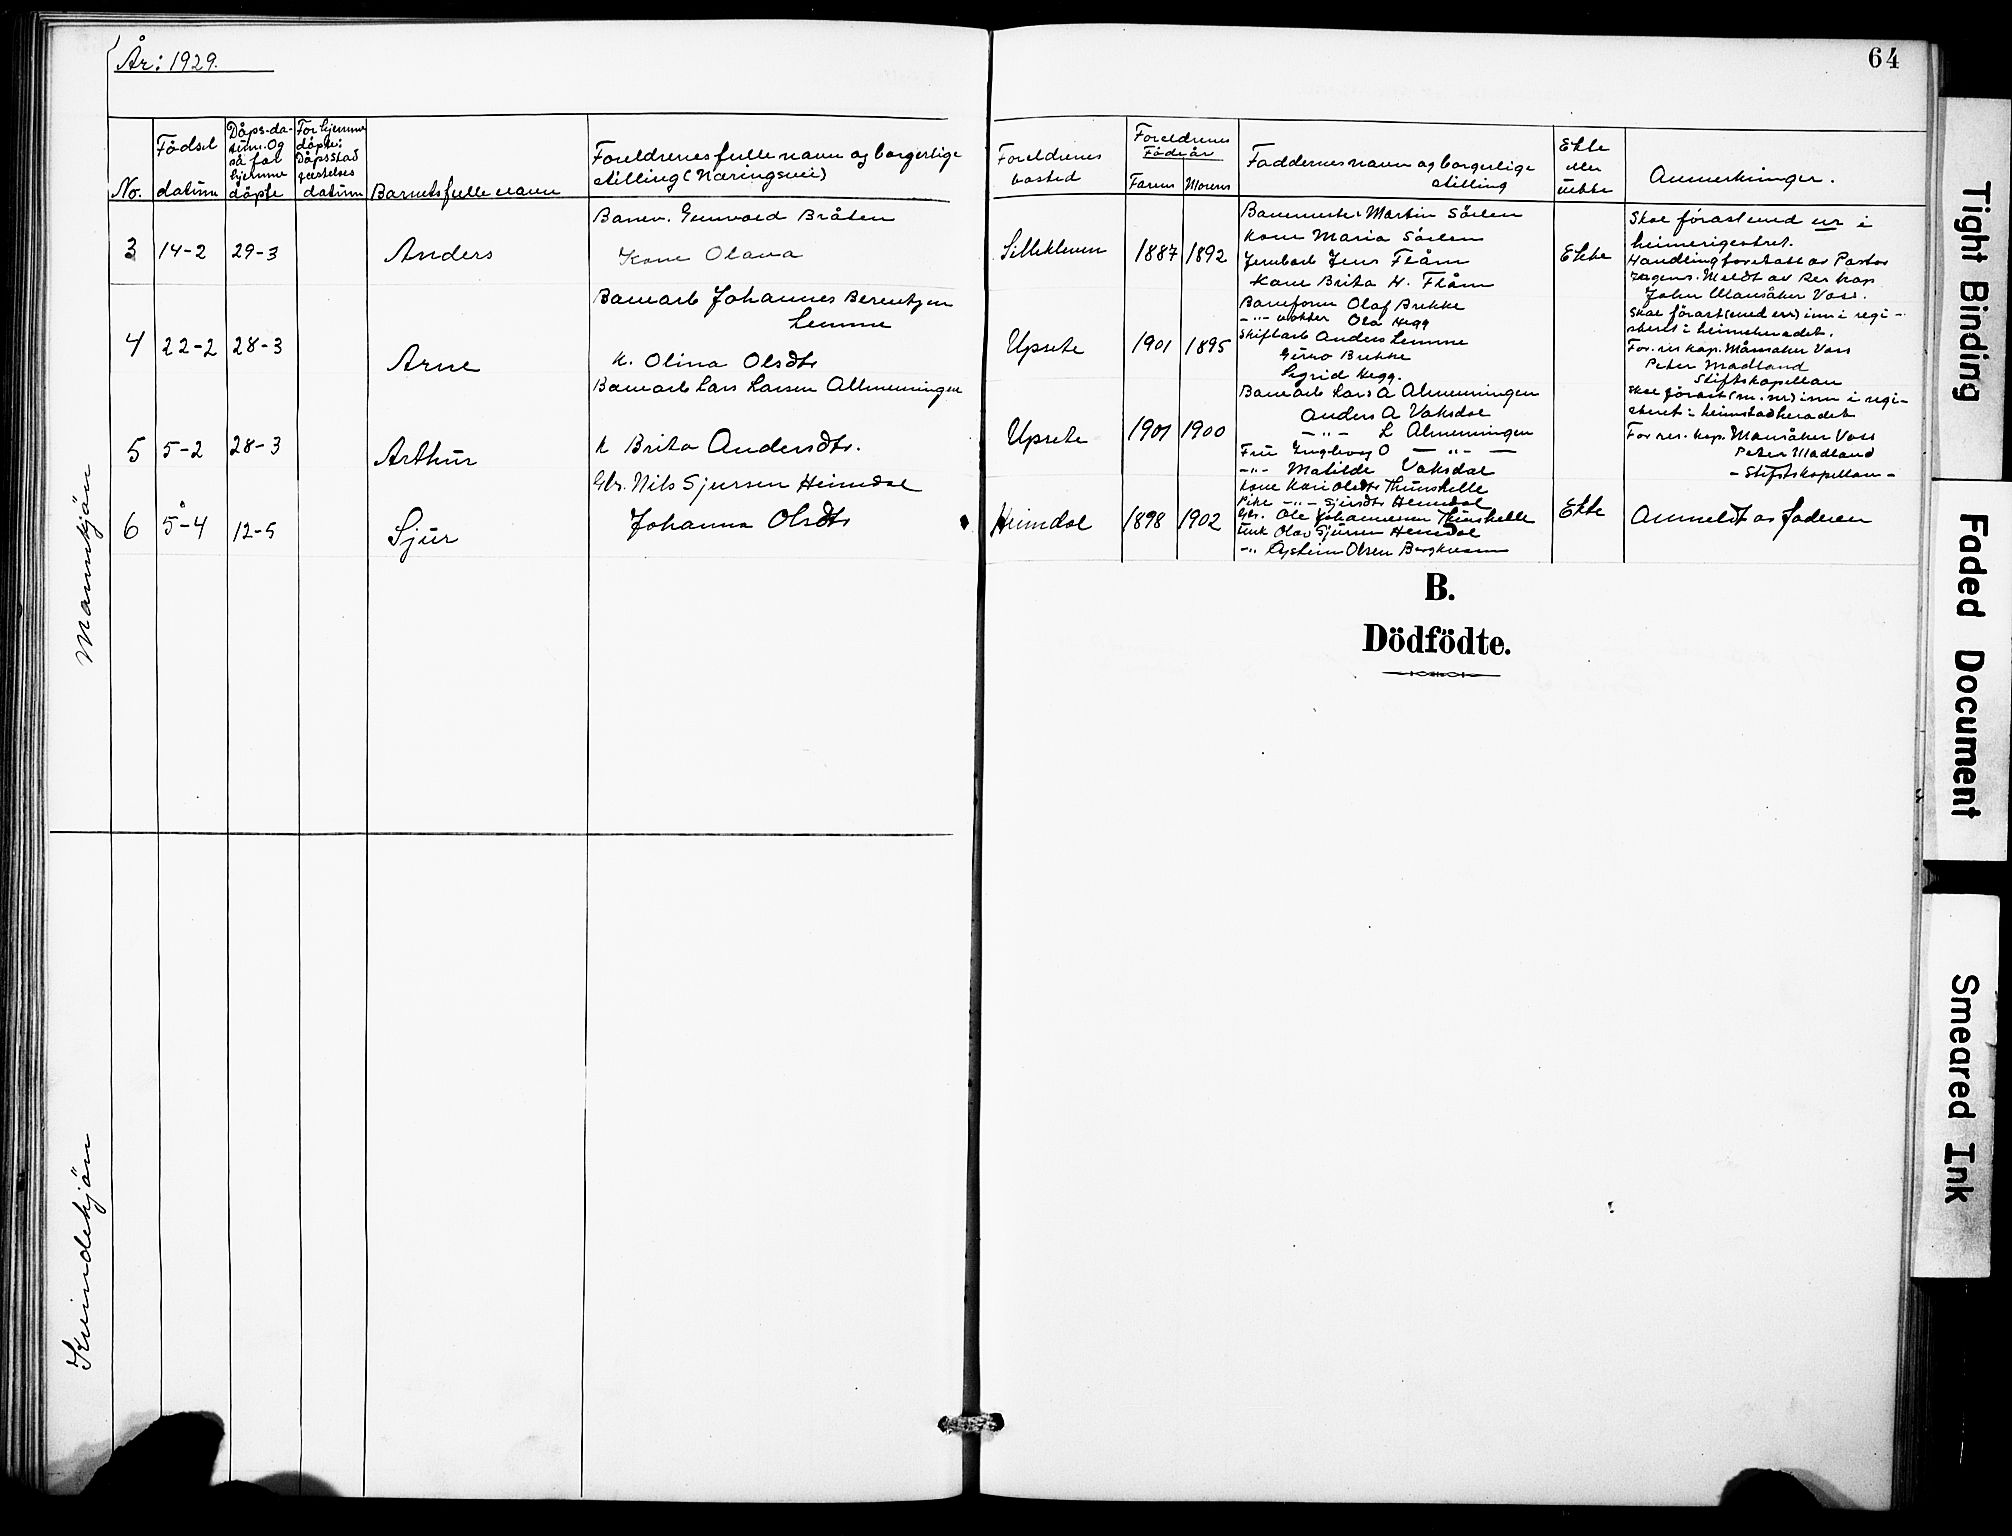 År: 1929.
64
No.
Födsel
datum
Dåps-da-
tum. Og
så for
hjemme
döpte
For hjemme
döpte:
Dåpsstad
festelses
datum
Barnets fulle navn
Foreldrenes fulle navn og borgerlige
stilling (Næringsvei)
Foreldrenes
bosted
Foreldrenes
Födeår
Farens
Morens
Faddernes navn og borgerlige
stilling
Ekte
eller
uekte
Anmerkninger.
Mannkjön
3
14-2
29-3
Anders
Banev. Gunvald Bråten
Kone Olava
1887
1892
Banemester Martin Sörlen
Kone Maria Sörlen
Jernbarb Jens Flåm
Kone Brita H. Flåm
Ekte
Skal förast med nr i
heimerigestret.
Handling foretatt av Pastor
Meldt av Res kap
4
22-2
28-3
Arne
Banearb Johannes Berentsen
Lemme
K. Olina Olsdtr
Upsete
1901
1895
Baneform Olaf Brekke
-"- vokter Ola Hegg
Skiftarb Anders Lemme
Brekke
Sigrid Hegg.
Skal förast (med nr) inn i regi-
steret i heimeheradet.
For. res kap. Månsåker Voss
Peter Madland
Stiftskapellan
5
5-2
28-3
Arthur
Banearb Lars Larsen Allmenningen
K Brita Andersdtr.
Upsete
1901
1900
Banearb Lars A Almenningen
Anders A Vaksdal
-"- L Almenningen
Fru Ingebörg O -"-
-"- Matilde Vaksdal
Skal förast (m. nr) inn i regi-
steret i heimstadheradet
For res. kap. Mansåker Voss
Peter Madland
- Stiftskapellan -
6
5-4
12-5
Sjur
Gbr. Nils Sjursen Heimdal
Johanna Olsdtr
Heimdal
1898
1902
Kone Kari Olsdtr Thunshelle
Pike -"- Sjursdtr Heimdal
Gbr. Ole Johannesen Thunshelle
Unk Olav Sjursen Heimdal
-"- Olsen
Ekte
Anmeldt av faderen
B.
Dödfödte.
Kvindekjön
Tight Binding
Faded Document
Smeared Ink